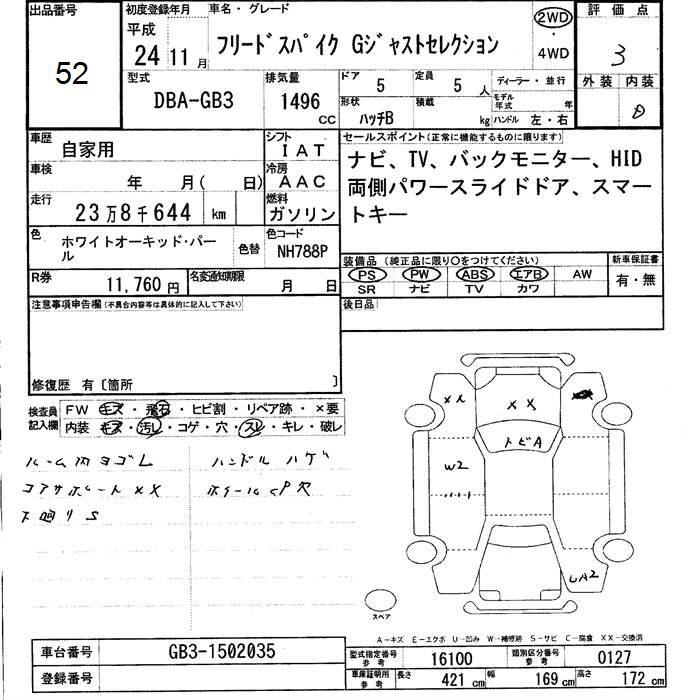 出品番号
52
初度登録年月
平成
24 11 月
車名・グレード
フリードスパイク Gジャストセレクション
2WD
・
4WD
評価点
3
型式
DBA-GB3
排気量
1496
cc
ドア
5
定員
5 人
形状
ハッチB
積載
kg
ディーラー・並行
モデル年式
年
ハンドル 左・右
外装 内装
D
車歴
自家用
シフト
IAT
車検
年 月( 日)
冷房
AAC
走行
23万8千644 km
燃料
ガソリン
色
ホワイトオーキッド・パール
色替
色コード
NH788P
R券
11,760 円
名変通知期限
月 日
セールスポイント(正常に機能するものに限ります)
ナビ、TV、バックモニター、HID
両側パワースライドドア、スマー
トキー
装備品(純正品に限り〇をつけてください)
PS PW ABS エアB AW
SR ナビ TV カワ
新車保証書
有・無
後日品
注意事項申告欄(不具合内容等は具体的に記入して下さい)
修復歴 有〔箇所 〕
検査員記入欄
FW キズ・飛石・ヒビ割・リペア跡・×要
内装 キズ・汚レ・コゲ・穴・スレ・キレ・破レ
ルーム内ヨゴレ
ハンドルハゲ
コアサポートXX
ホイールCP穴
下廻りS
XX
XX
トビA
W2
UA2
スペア
A-キズ E-エクボ U-凹み W-補修跡 S-サビ C-腐食 XX-交換済
車台番号
GB3-1502035
登録番号
型式指定番号
参考
16100
類別区分番号
参考
0127
車庫証明用
参考
長さ
421 cm
幅
169 cm
高さ
172 cm